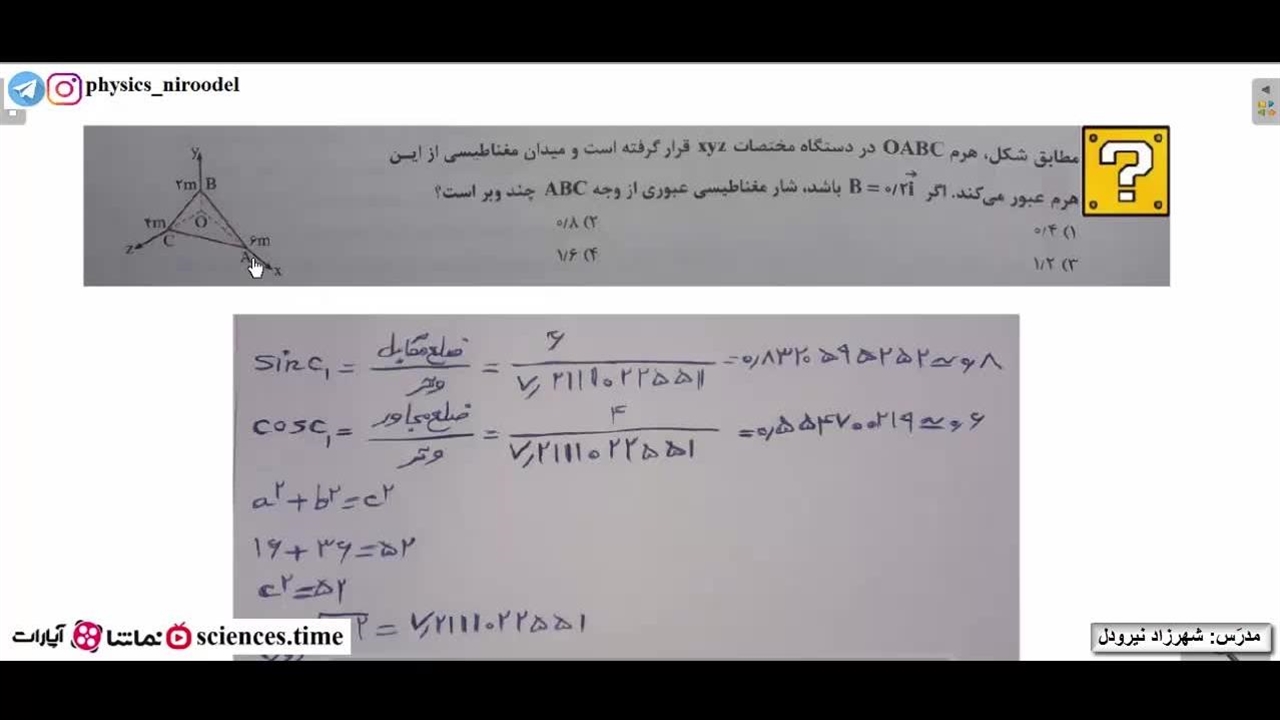 physics_niroodel
مطابق شکل، هرم OABC در دستگاه مختصات xyz قرار گرفته است و میدان مغناطیسی از این
هرم عبور می‌کند. اگر B = ۰/۲i باشد، شار مغناطیسی عبوری از وجه ABC چند وبر است؟
۱) ۰/۴
۲) ۰/۸
۳) ۱/۲
۴) ۱/۶
y
۲m B
O
۴m
C
z
۶m
A
x
sinc₁ = ضلع مقابل / وتر = ۶ / ۷٫۲۱۱۱۰۲۲۵۵۱ = ۰٫۸۳۲۰۵۹۵۲۵۲ ≃ ۰٫۸
cosc₁ = ضلع مجاور / وتر = ۴ / ۷٫۲۱۱۱۰۲۲۵۵۱ = ۰٫۵۵۴۷۰۰۲۱۹ ≃ ۰٫۶
a² + b² = c²
۱۶ + ۳۶ = ۵۲
c² = ۵۲
۲ = ۷٫۲۱۱۱۰۲۲۵۵۱
آپارات نماشا sciences.time
مدرّس: شهرزاد نیرودل